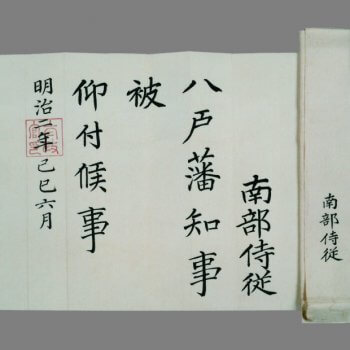 南部侍従
八戸藩知事
被
仰付候事
明治二年己巳六月
南部侍従